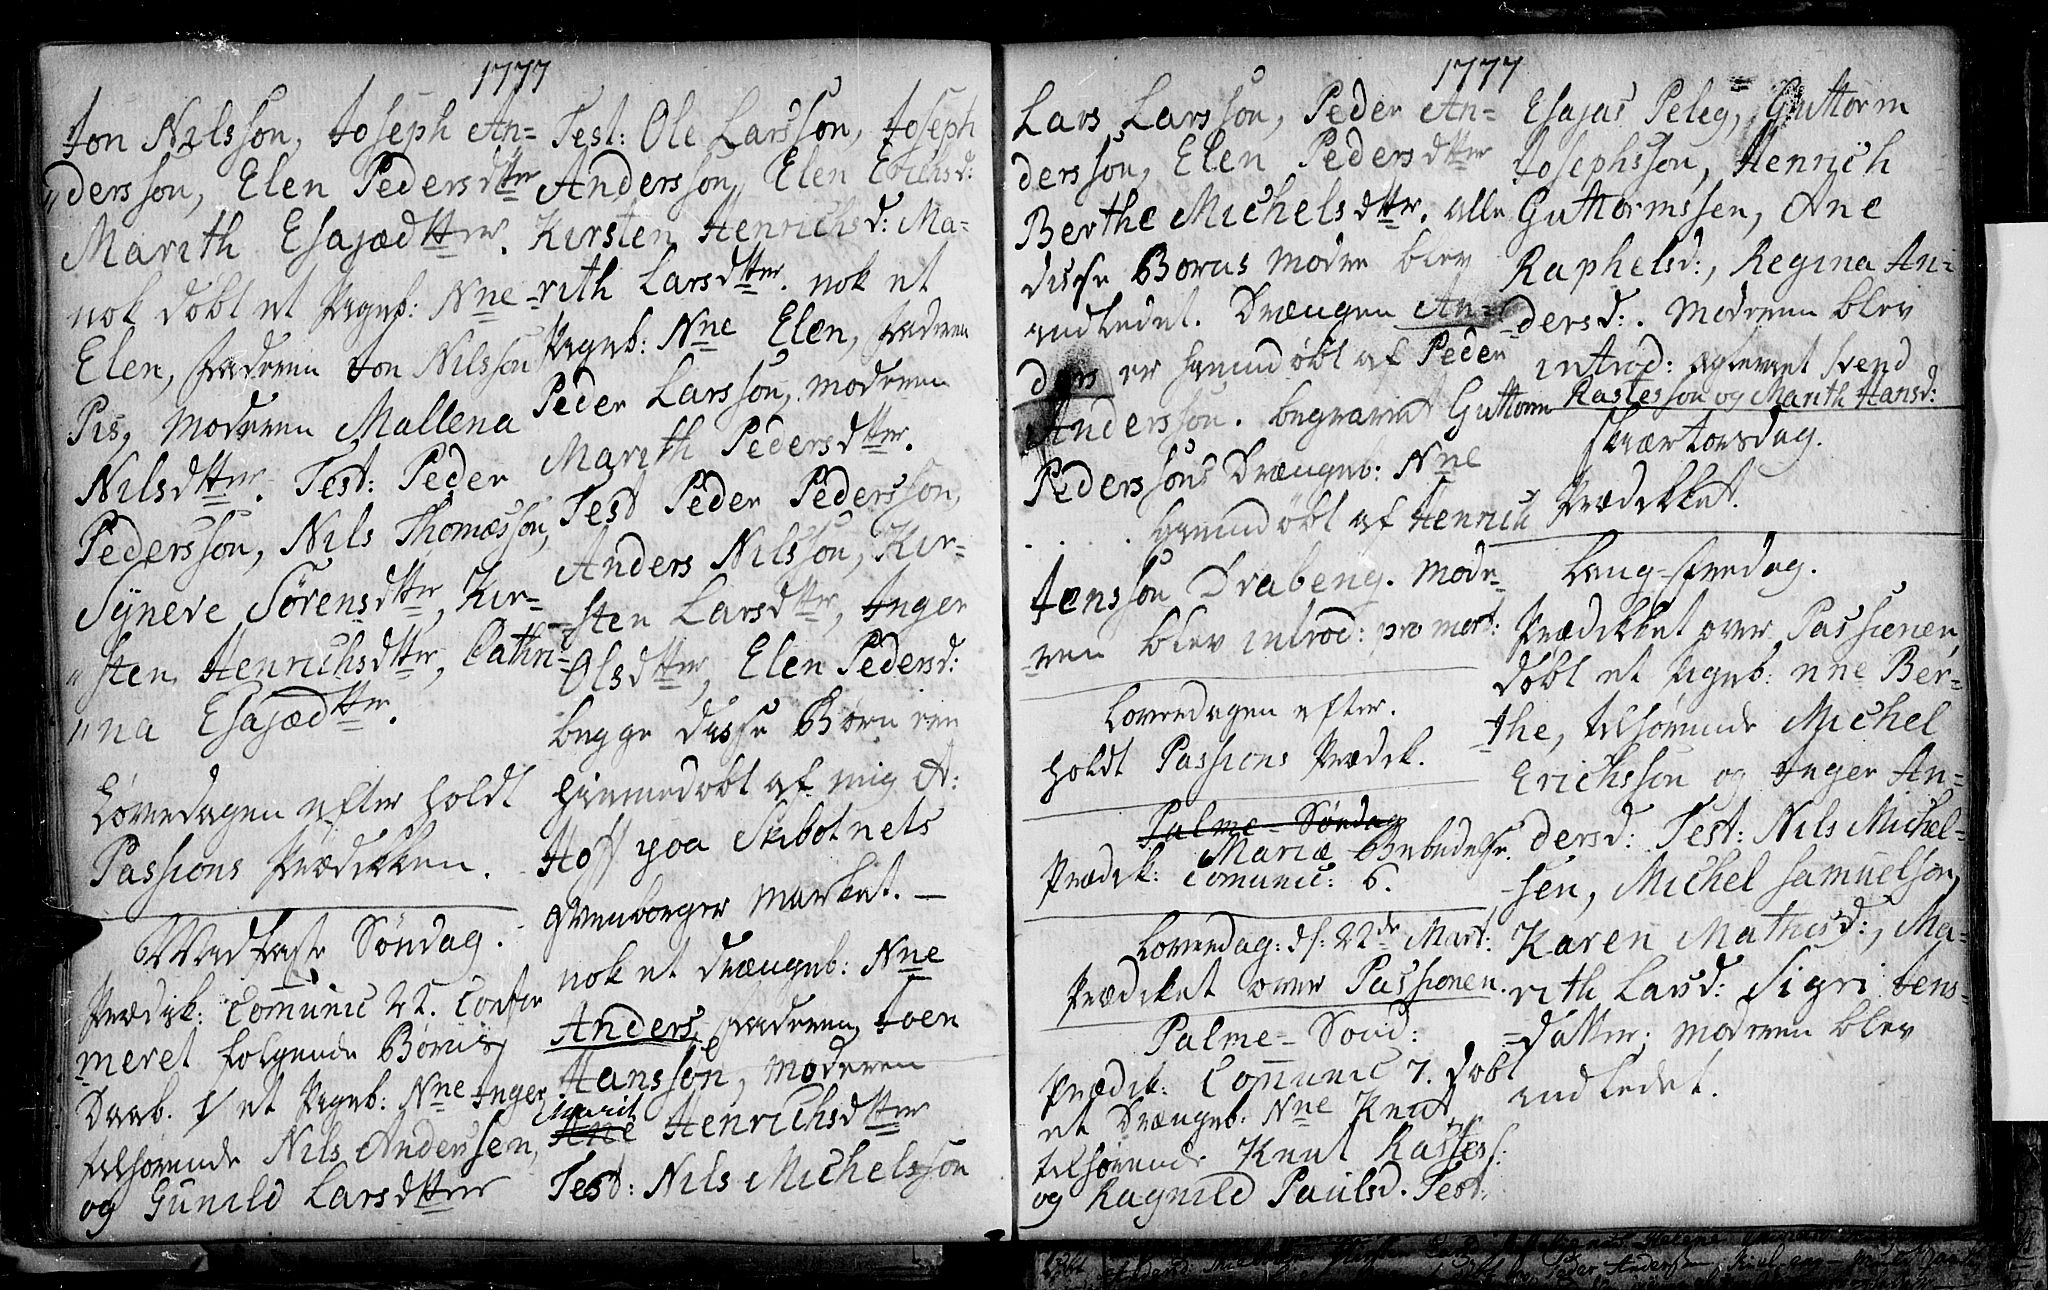 1777
Jon Nilsson, Joseph An=
"dersson, Elen Pedersdtter
Marith Esajædtter.
nok døbt et Pigeb: Nne
Elen, faderen Jon Nilsson
Pis, moderen Mallena
Nilsdtter. Test: Peder
Pedersson, Nils Thomæsson,
Syneve Sørensdtter, Kir=
"sten Henrichsdtter, Cathri=
"na Esajædtter.
Løverdagen efter holdt
Passions Prædikken.
Fastes Søndag.
Prædik: Comunic 22. Confir
meret følgende Børn
Daab. 1/ et Pigeb: Nne Inger
tilhørende Nils Andersen,
og Gunild Larsdtter
Test: Ole Larsson, Joseph
Andersson, Elen Erichsd:
Kirsten Henrichsd: Ma=
=rith Larsdtter. nok et
Pigeb: Nne Elen, faderen
Peder Larsson, moderen
Marith Pedersdtter.
Test Peder Pedersson,
Anders Nilsson, Kir=
=sten Larsdtter, Inger
Olsdtter, Elen Pedersd:
begge disse Børn ere
hiemmedøbt af mig A:
Hoff paa Skibotnets
market. —
nok et Drængeb: Nne
Anders, faderen Joen
Hansson, moderen
Marit
Ane Henrichsdtter
Test: Nils Michelsson
1777
Lars Larsson, Peder An=
dersson, Elen Pedersdtter
Berthe Michelsdtter. alle
disse Børns mødre blev
indledet. Drængen An=
ders er hiemdøbt af Peder
Andersson. begravet Guttorm
Pederssons Drængeb: Nne
. . . . hiemdøbt af Henrich
Jensson Drabeng. mode=
=ren blev introd: pro mort:
Løverdagen efter.
holdt Passions Prædik.
Palme=Søndag
Mariæ Bebudelse.
Prædik: Comunic: 6.
Løverdag: d: 22de Mart:
Prædiket over Passionen.
Palme=Sønd:
Prædik: Comunic 7. Døbt
et Drængeb: Nne Knut
tilhørende Knut Rastess:
og Ragnild Paulsd. Test:
Esajas Peleg, Guttorm
Josephsson, Henrich
Guttormssen, Ane
Raphelsd:, Regina An=
=dersd:. Moderen blev
introd: Svend
Rastesson og Marith Hansd:
Skiærtorsdag.
Prædikket.
Lang=fredag.
Prædikket over Passionen
døbt et Pigeb: nne Ber=
the, tilhørende Michel
Erichsson og Inger An=
dersd: Test: Nils Michel=
sen, Michel Samuelson,
Karen Mathisd:, Ma=
rith Larsd: Sigri Jens=
=datter; moderen blev
indledet.